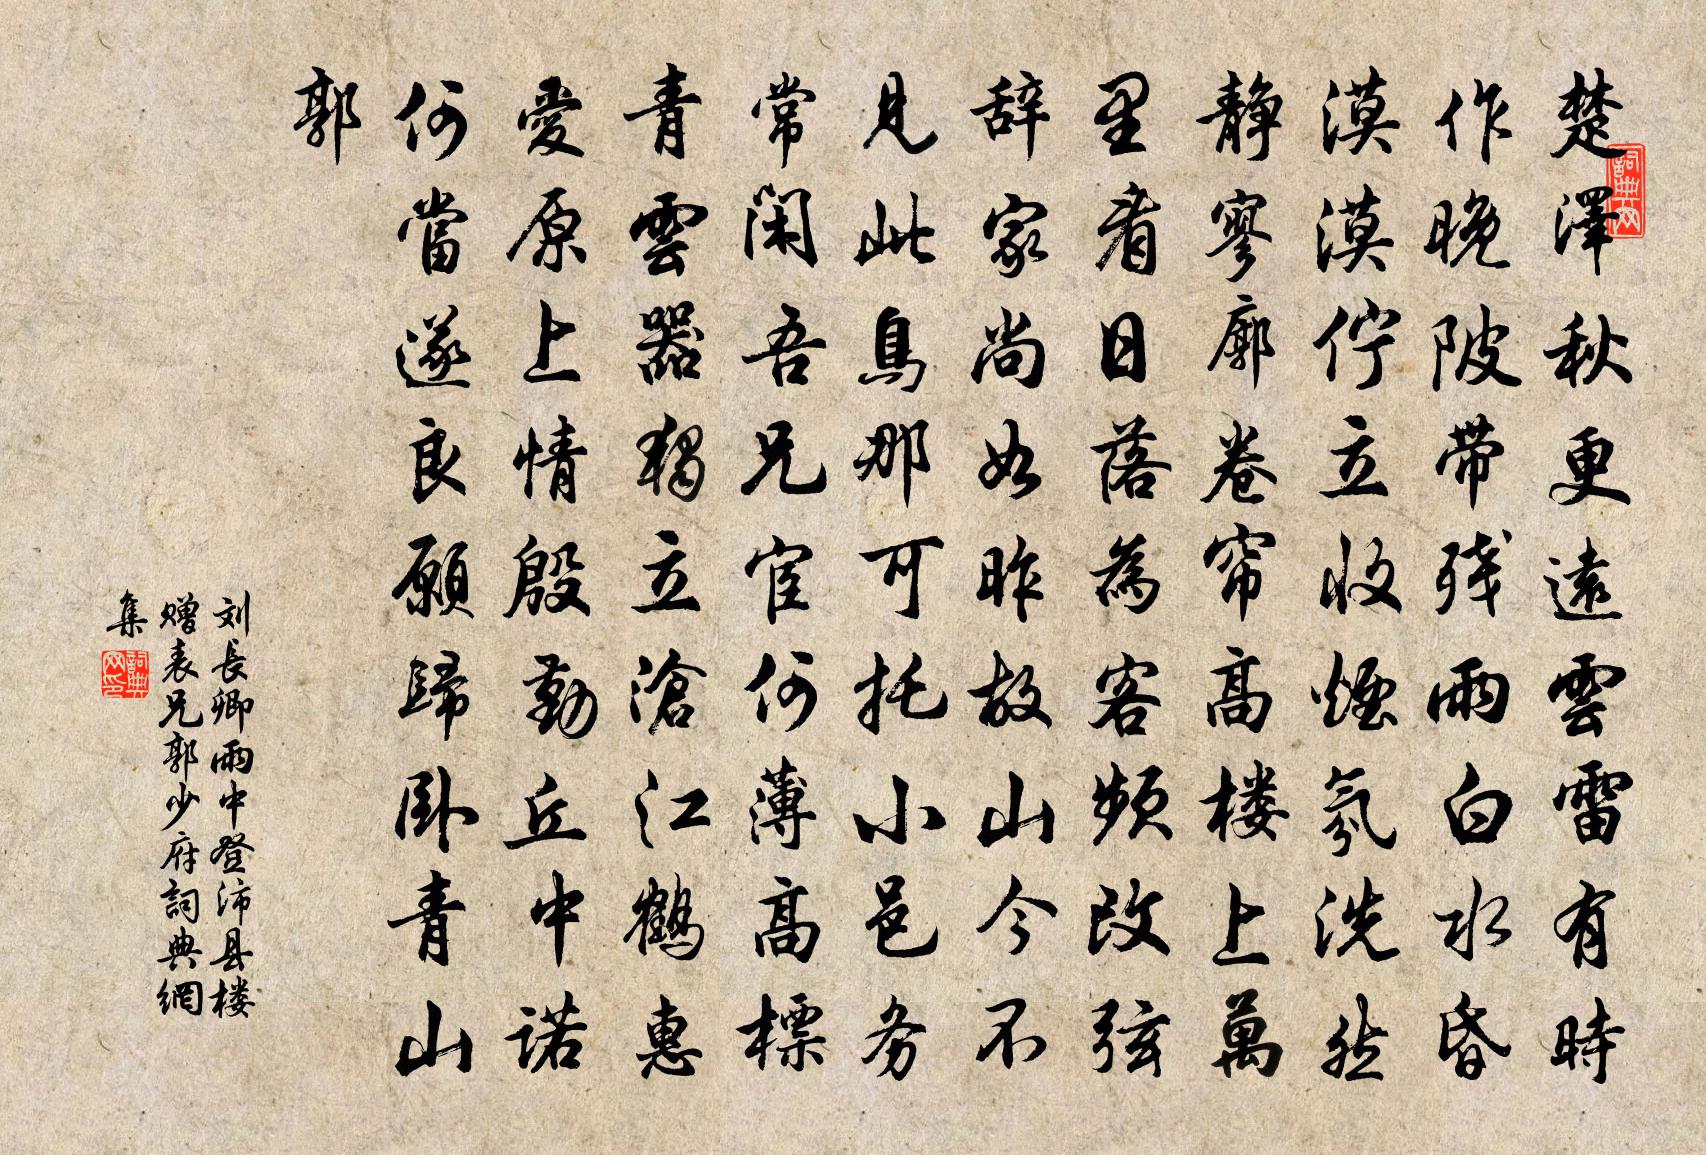 楚澤秋更遠雲雷有時
作晚陂带残雨白水昏
漠漠佇立收煙氛洗然
静寥廓卷帘高楼上萬
里看日落為客頻改弦
辞家尚如昨故山今不
見此鳥那可托小邑务
常闲吾兄宦何薄高標
青雲器獨立滄江鶴惠
愛原上情殷勤丘中诺
何當遂良願歸卧青山
郭
刘長卿雨中登沛县楼
赠表兄郭少府詞典網
集
詞典网
詞典网印